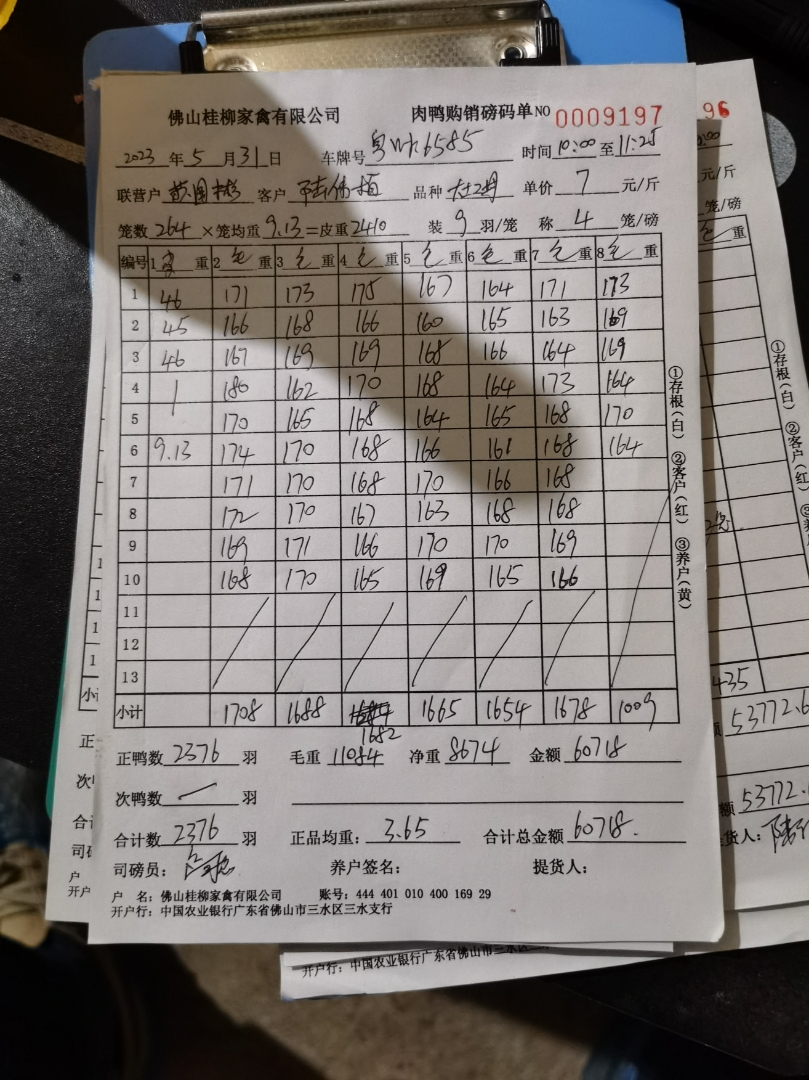 佛山桂柳家禽有限公司 肉鸭购销磅码单NO 0009197
2023 年 5 月 31 日 车牌号 6585 时间 10:00 至 11:25
联营户 客户 品种 单价 7 元/斤
笼数 264 ×笼均重 9.13 =皮重 2410 装 9 羽/笼 称 4 笼/磅
编号 1 重 2 毛 重 3 毛 重 4 毛 重 5 毛 重 6 毛 重 7 毛 重 8 毛 重
1 46 171 173 175 167 164 171 173
2 45 166 168 166 160 165 163 169
3 46 167 169 169 168 166 164 169
4 180 162 170 168 164 173 164
5 170 165 168 164 165 168 170
6 9.13 174 170 168 166 161 168 164
7 171 170 168 170 166 168
8 172 170 167 163 168 168
9 169 171 166 170 170 169
10 168 170 165 169 165 166
11
12
13
小计 1708 1688 1682 1665 1654 1678 1009
正鸭数 2376 羽 毛重 11084 净重 8674 金额 60718
次鸭数 羽
合计数 2376 羽 正品均重: 3.65 合计总金额 60718.
司磅员: 养户签名: 提货人:
户 名: 佛山桂柳家禽有限公司 账号: 444 401 010 400 169 29
开户行: 中国农业银行广东省佛山市三水区三水支行
①存根(白) ②客户(红) ③养户(黄)
96
元/斤
笼/磅
重
①存根(白) ②客户(红)
435
53772.6
53772.
提货人:
开户行: 中国农业银行广东省佛山市三水区